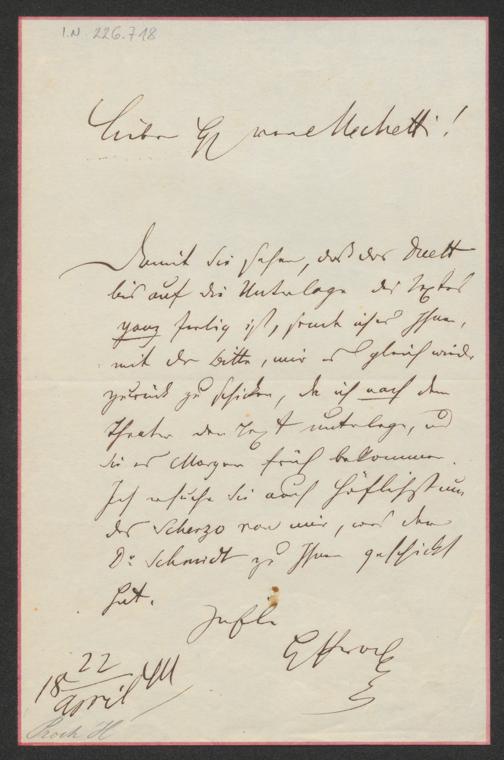 I.N. 226.718
Lieber H von Mechetti!
Damit Sie sehen, daß das Duett
bis auf die Unterlage des Textes
ganz fertig ist, sende ich es Ihnen,
mit der Bitte, mir es gleich wieder
zurück zu schicken, da ich nach dem
Theater den Text unterlege, und
Sie es Morgen früh bekommen.
Ich ersuche Sie auch höflichst um
das Scherzo von mir, was dem
Dr Schmidt zu Ihnen geschickt
hat.
HProch
22
18 April 41
Proch H